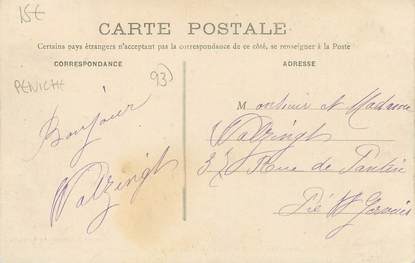 15€
CARTE POSTALE
Certains pays étrangers n'acceptant pas la correspondance de ce côté, se renseigner à la Poste
CORRESPONDANCE
ADRESSE
PENICHE
93)
Bonjour
Valzingh
Monsieur et Madame
Valzingh
Rue de Pantin
Pré St Gervais